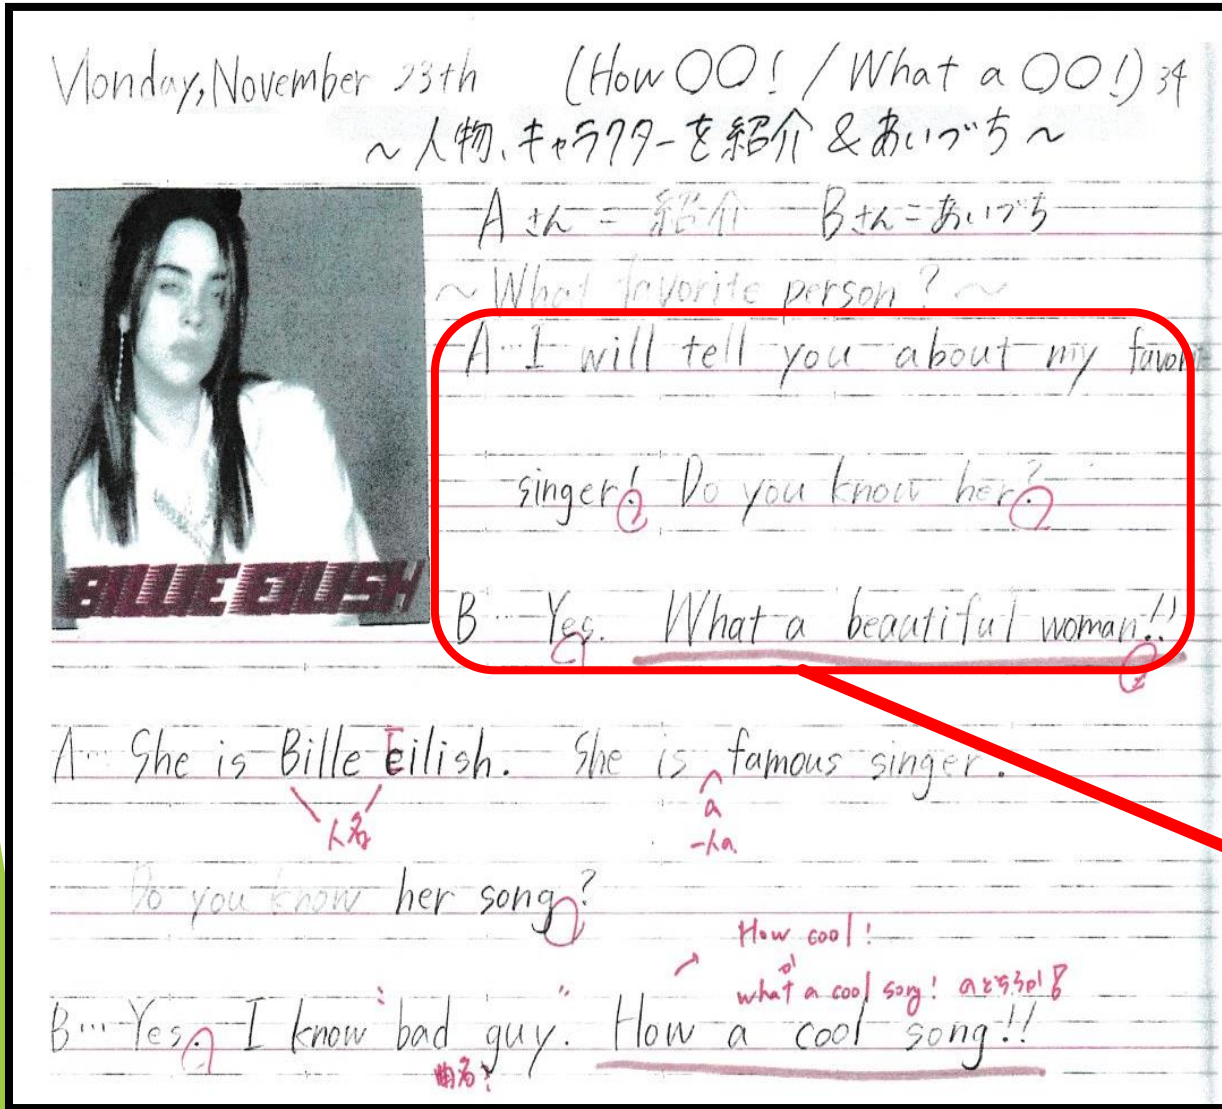 Monday, November 23th (How ○○! / What a ○○!) 34
～人物、キャラクターを紹介 & あいづち～
Aさん = 紹介 Bさん = あいづち
～What favorite person?～
A… I will tell you about my favori
singer! Do you know her?
BILLIE EILISH
B… Yes. What a beautiful woman!!
A… She is Bille Eilish. She is famous singer.
人名
a
一人の
Do you know her song?
How cool!
or
what a cool song! のどちらか!
B… Yes. I know "bad guy". How a cool song!!
曲名